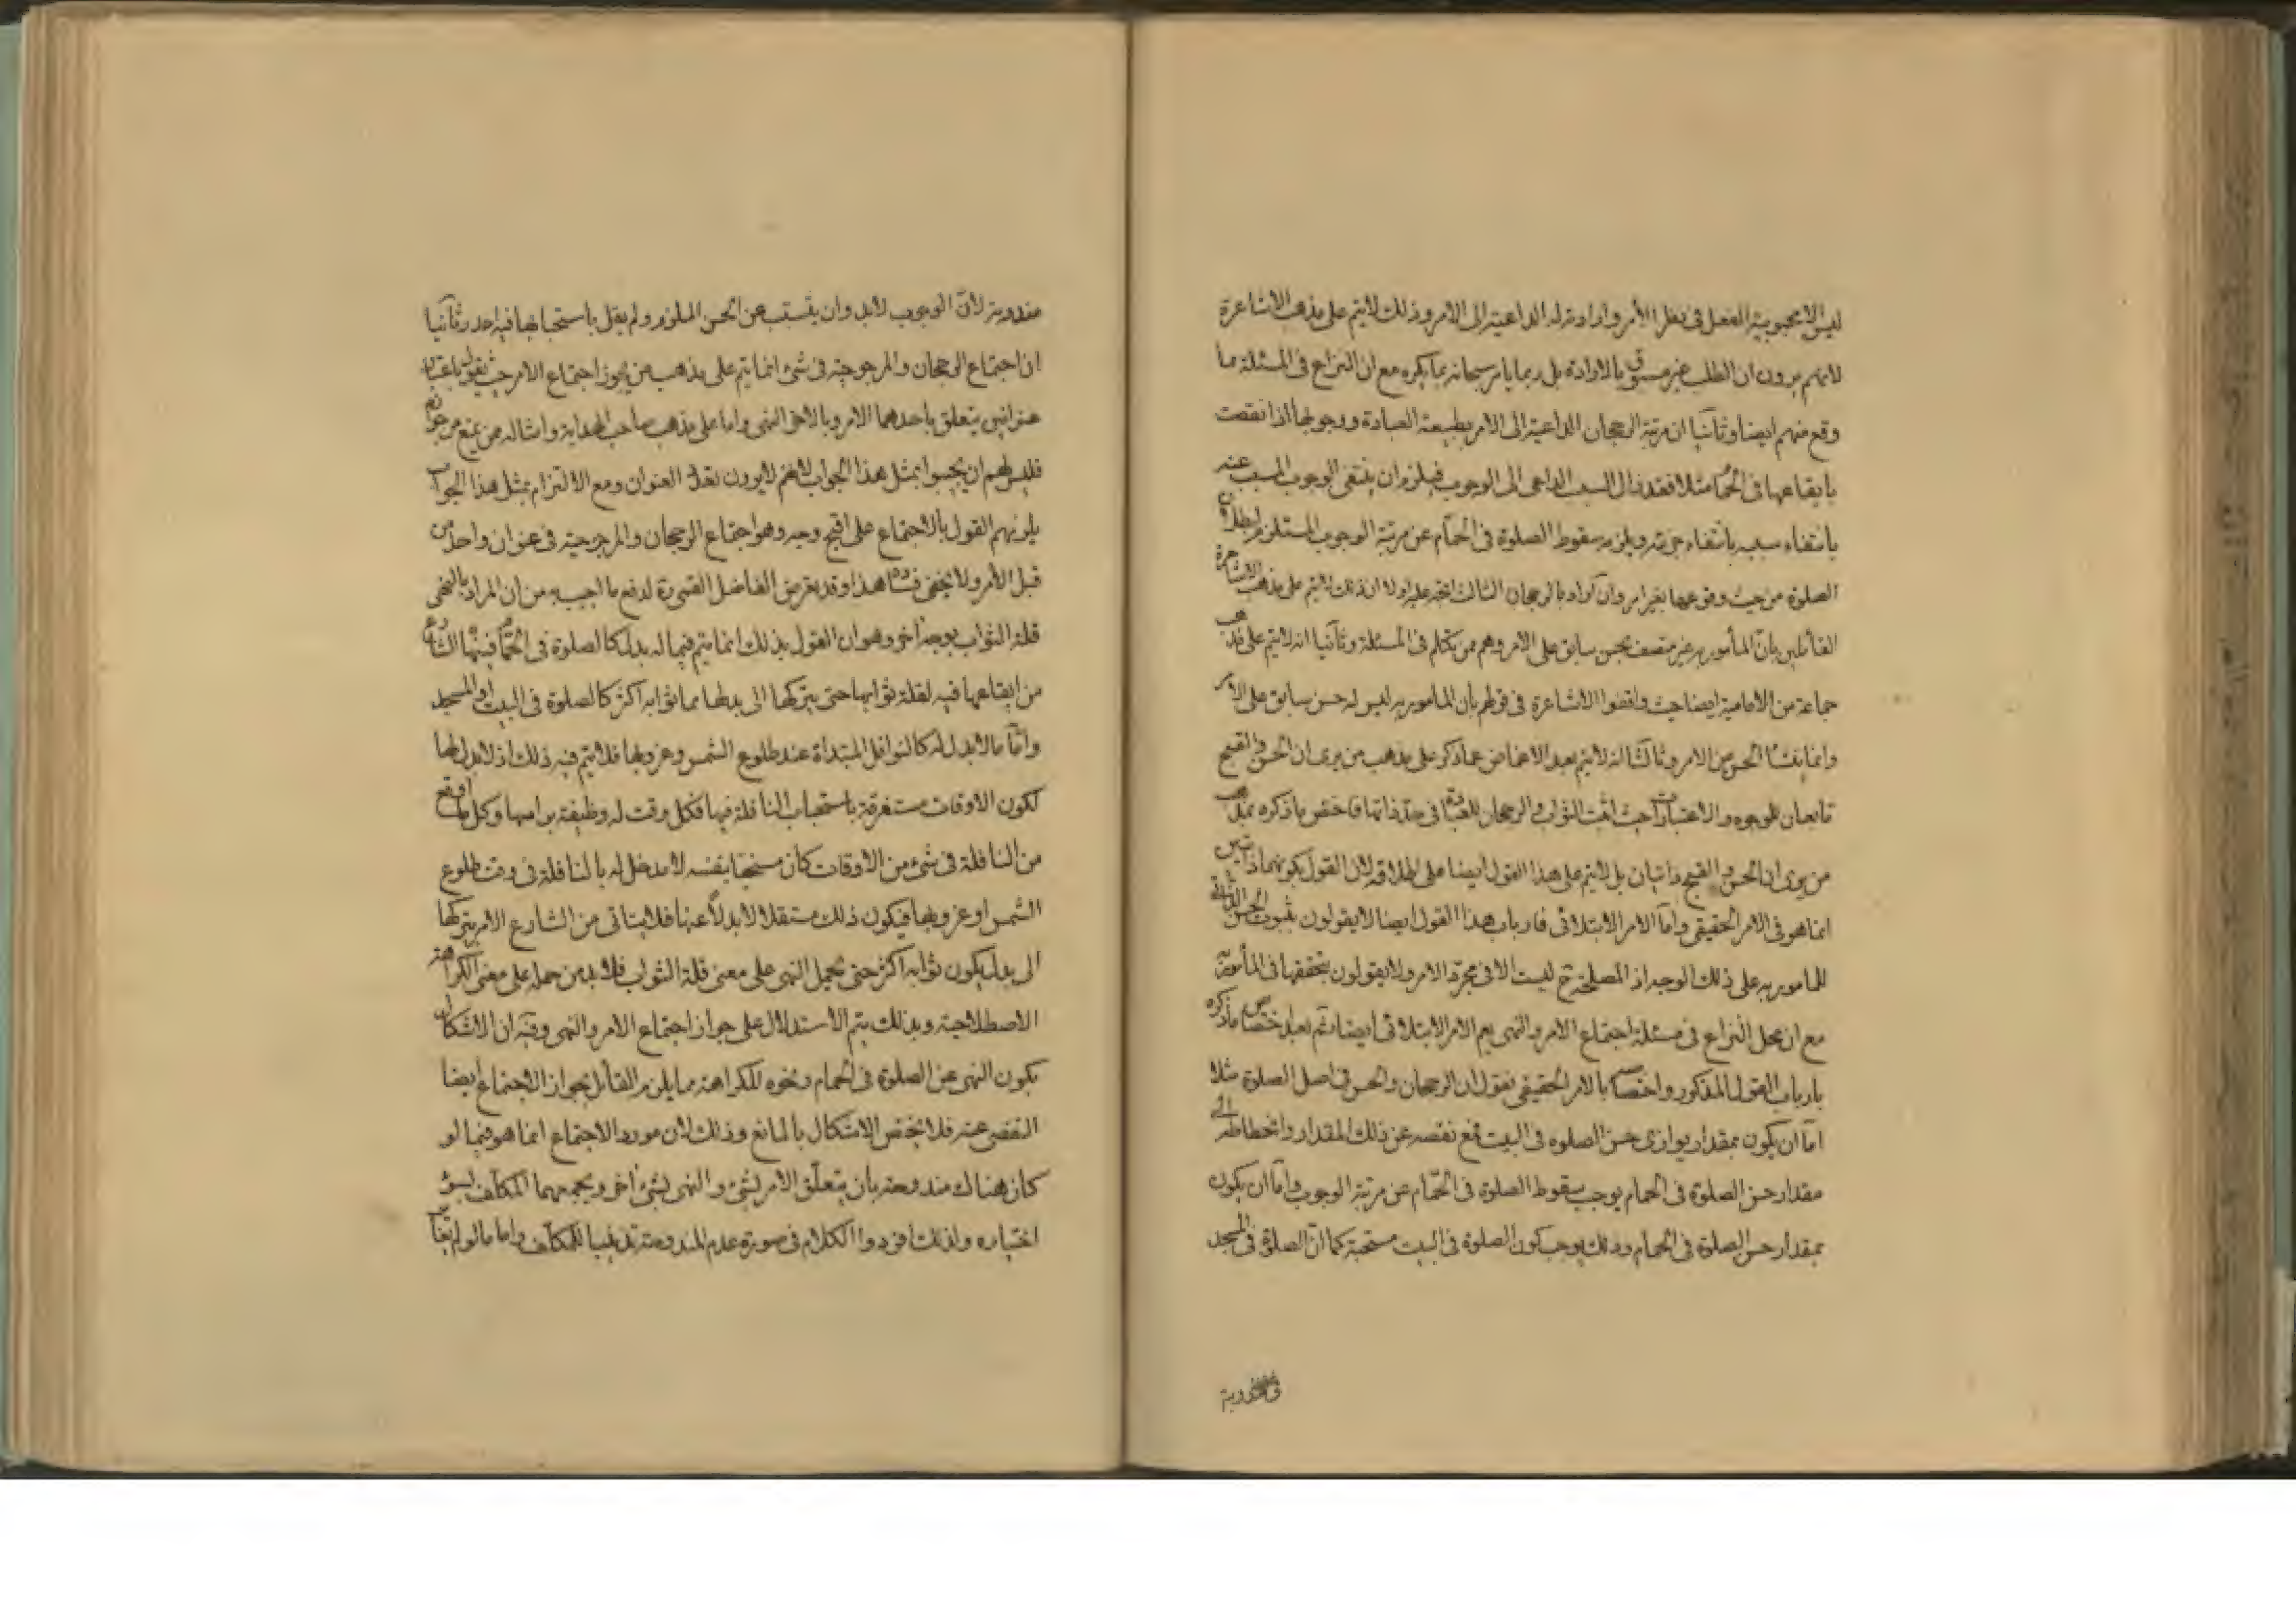 ليس الا محبوبية الفعل فى نظر الآمر وارادته له الداعية الى الامر وذلك لايتم على مذهب الاشاعرة
لانهم يرون ان الطلب غير مسبوق بالارادة بل ربما يامر سبحانه بما يكره مع ان النزاع فى المسئلة مما
وقع منهم ايضا وثانيا ان مرتبة الرجحان الداعية الى الامر بطبيعة العبادة ووجوبها اذا نقصت
بايقاعها فى الحمام مثلا فقد زال السبب الداعى الى الوجوب فيلزم ان ينتفى الوجوب المسبب عنه
بانتفاء سببه بانتفاء جزئه ويلزمه سقوط الصلوة فى الحمام عن مرتبة الوجوب المستلزم لبطلان
الصلوة من حيث وقوعها بغير امر وان اراد بالرجحان الثالث اتجه عليه اولا ان ذلك لايتم على مذهب الاشاعرة
القائلين بانّ المأمور به غير متصف بحسن سابق على الامر وهم ممن يتكلم فى المسئلة وثانيا انه لايتم على مذهب
جماعة من الامامية ايضا حيث وافقوا الاشاعرة فى قولهم بان المامور به ليس له حسن سابق على الامر
وانما ينشأ الحسن من الامر وثالثا انه لايتم بعد الاغماض عما ذكر على مذهب من يرى ان الحسن والقبح
تابعان للوجوه والاعتبارات حيث اثبت الثواب والرجحان للعبادة فى حدّ ذاتها فاختص ما ذكره بمذهب
من يرى ان الحسن والقبح ذاتيان بل لايتم على هذا القول ايضا على اطلاقه لان القول بكونهما ذاتيين
انما هو فى الامر الحقيقى وامّا الامر الابتلائى فارباب هذا القول ايضا لايقولون بثبوت الحسن الذاتى
للمامور به على ذلك الوجه اذ المصلحة ح ليست الا فى مجرّد الامر ولايقولون بتحققها فى المأمور به
مع ان محل النزاع فى مسئلة اجتماع الامر والنهى يعم الامر الابتلائى ايضا ثم بعد اختصاص ما ذكره
بارباب القول المذكور واختصاصه بالامر الحقيقى نقول ان الرجحان والحسن فى اصل الصلوة مثلا
امّا ان يكون بمقدار يوازى حسن الصلوة فى البيت فمع نقصه عن ذلك المقدار وانحطاطه الى
مقدار حسن الصلوة فى الحمام يوجب سقوط الصلوة فى الحمّام عن مرتبة الوجوب وامّا ان يكون
بمقدار حسن الصلوة فى الحمام وذلك يوجب كون الصلوة فى البيت مستحبة كما انّ الصلوة فى المسجد
مندوبة
مندوبة لانّ الوجوب لابد وان يتسبب عن الحسن الملزم ولم يقل باستحبابها فيه احد وثانيا
ان اجتماع الرجحان والمرجوحية فى شئ انما يتم على مذهب من يجوز اجتماع الامر حيث يقول باعتبار
عنوانين يتعلق باحدهما الامر وبالاخر النهى واما على مذهب صاحب الهداية وامثاله ممن يمنع من جوازه
فليس لهم ان يجيبوا بمثل هذا الجواب لانهم لايرون تعدد العنوان ومع الالتزام بمثل هذا الجواب
يلزمهم القول بالاجتماع على اقبح وجه وهو اجتماع الرجحان والمرجوحية فى عنوان واحد من
قبل الأمر ولا يخفى فساده هذا وقد تعرض الفاضل القمى ره لدفع ما اجيب به من ان المراد بالنهى
قلة الثواب بوجه اخر وهو ان القول بذلك انما يتم فيما له بدل كالصلوة فى الحمام فينهى الشارع
من ايقاعها فيه لقلة ثوابها حتى يتركها الى بدلها مما ثوابه اكثر كالصلوة فى البيت او المسجد
وامّا ما لابدل له كالنوافل المبتداة عند طلوع الشمس وغروبها فلا يتم فيه ذلك اذ لابدل لها
لكون الاوقات مستغرقة باستحباب النافلة فيها فكل وقت له وظيفة براسها وكل ما وقع
من النافلة فى شئ من الاوقات كان مستحبا بنفسه لا مدخل له بالنافلة فى وقت طلوع
الشمس او غروبها فيكون ذلك مستقلا لابدلاً عنها فلا يتاتى من الشارع الامر بتركها
الى بدل يكون ثوابه اكثر حتى يحمل النهى على معنى قلة الثواب فلا بد من حمله على معنى الكراهة
الاصطلاحية وبذلك يتم الاستدلال على جواز اجتماع الامر والنهى وفيه ان الاشكال
بكون النهى عن الصلوة فى الحمام ونحوه للكراهة مما يلزم القائل بجواز الاجتماع ايضا
التفصى عنه فلا يختص الاشكال بالمانع وذلك لان مورد الاجتماع انما هو فيما لو
كان هناك مندوحة بان يتعلّق الامر بشئ والنهى بشئ اخر ويجمعهما المكلف بسوء
اختياره ولذلك افردوا الكلام فى صورة عدم المندوحة واما ما لو لم